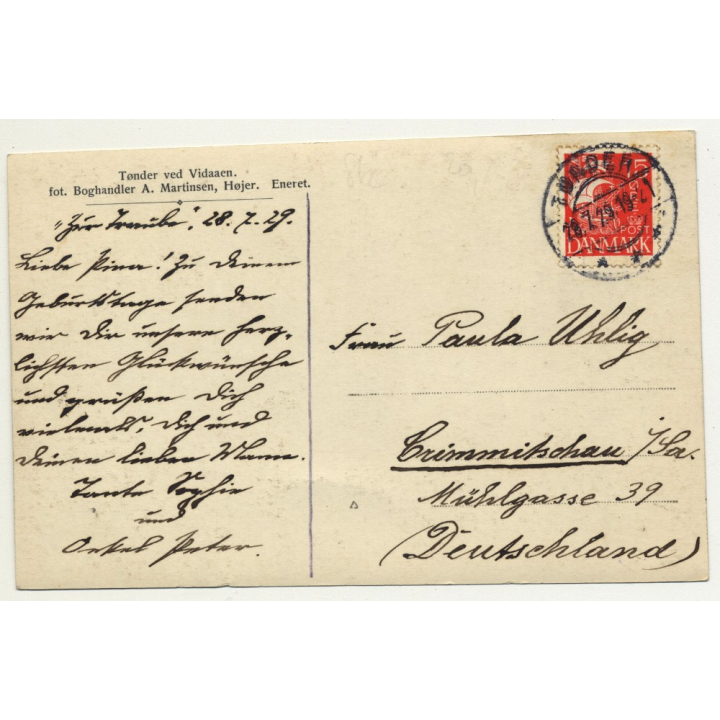 Tønder ved Vidaaen.
fot. Boghandler A. Martinsen, Højer. Eneret.
"Zur Traube", 28.7.29.
Liebe Pina! Zu Deinem
Geburtstage senden
wir Dir unsere herz-
lichsten Glückwünsche
und grüßen Dich
vielmals, Dich und
Deinen lieben Mann.
Tante Sophie
und
Onkel Peter.
TØNDER
28.7.29.19-21
15
POST
DANMARK
Frau Paula Uhlig
Crimmitschau i/Sa.
Mühlgasse 39
(Deutschland)